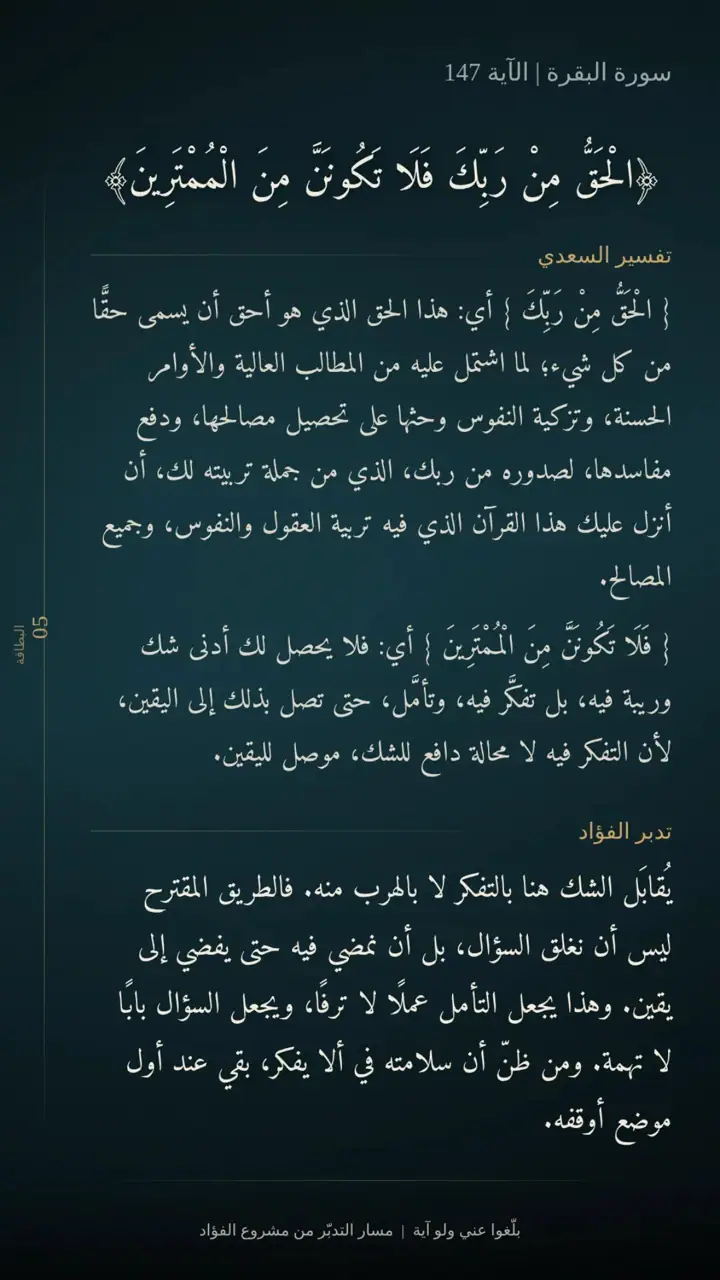 سورة البقرة | الآية 147
﴿الْحَقُّ مِنْ رَبِّكَ فَلَا تَكُونَنَّ مِنَ الْمُمْتَرِينَ﴾
تفسير السعدي
{ الْحَقُّ مِنْ رَبِّكَ } أي: هذا الحق الذي هو أحق أن يسمى حقًّا
من كل شيء؛ لما اشتمل عليه من المطالب العالية والأوامر
الحسنة، وتزكية النفوس وحثها على تحصيل مصالحها، ودفع
مفاسدها، لصدوره من ربك، الذي من جملة تربيته لك، أن
أنزل عليك هذا القرآن الذي فيه تربية العقول والنفوس، وجميع
المصالح.
{ فَلَا تَكُونَنَّ مِنَ الْمُمْتَرِينَ } أي: فلا يحصل لك أدنى شك
وريبة فيه، بل تفكَّر فيه، وتأمَّل، حتى تصل بذلك إلى اليقين،
لأن التفكر فيه لا محالة دافع للشك، موصل لليقين.
تدبر الفؤاد
يُقابَل الشك هنا بالتفكر لا بالهرب منه. فالطريق المقترح
ليس أن نغلق السؤال، بل أن نمضي فيه حتى يفضي إلى
يقين. وهذا يجعل التأمل عملًا لا ترفًا، ويجعل السؤال بابًا
لا تهمة. ومن ظنّ أن سلامته في ألا يفكر، بقي عند أول
موضع أوقفه.
05
البطاقة
بلّغوا عني ولو آية | مسار التدبّر من مشروع الفؤاد